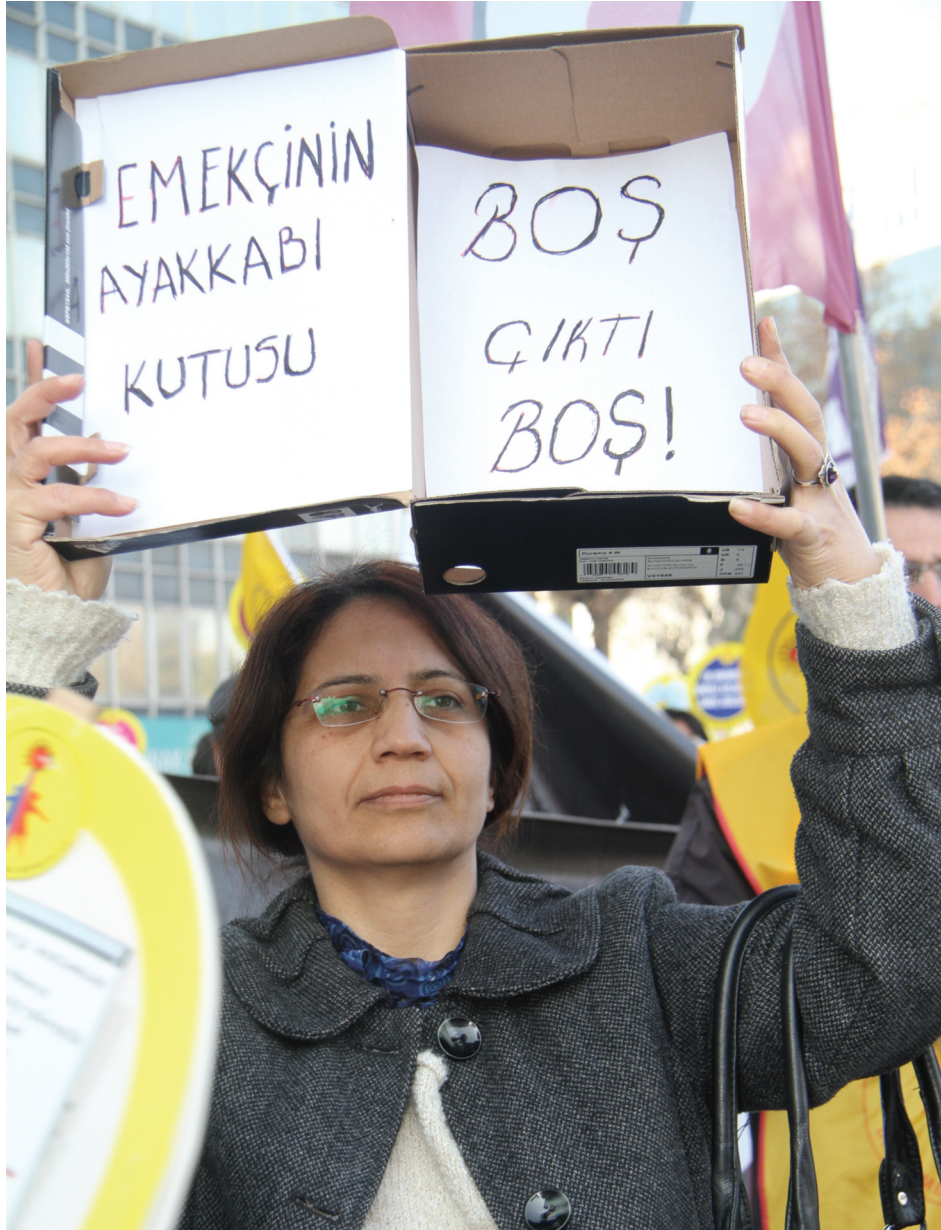 EMEKÇİNİN
AYAKKABI
KUTUSU
BOŞ
ÇIKTI
BOŞ!
Duramo 4 M